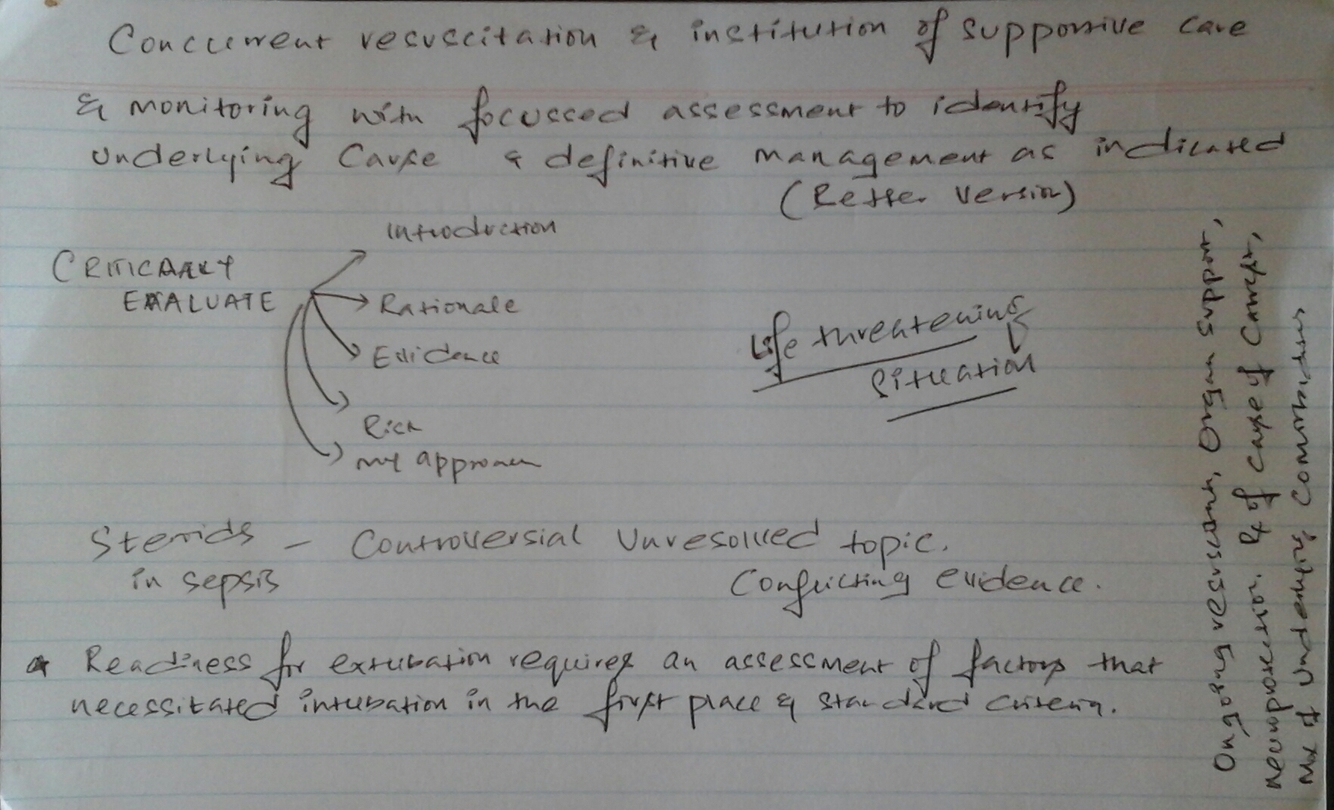 Concurrent resuscitation & institution of supportive care
& monitoring with focussed assessment to identify
underlying Cause & definitive management as indicated
(Better Version)
Introduction
CRITICALLY
EVALUATE
Rationale
Evidence
Risk
my approach
Life threatening
Situation
Steroids – Controversial Unresolved topic.
in sepsis Conflicting evidence.
Readiness for extubation requires an assessment of factors that
necessitated intubation in the first place & standard criteria.
Ongoing resuscitation, Organ support,
neuroprotection. Rx of cause of
Mx of underlying comorbidities